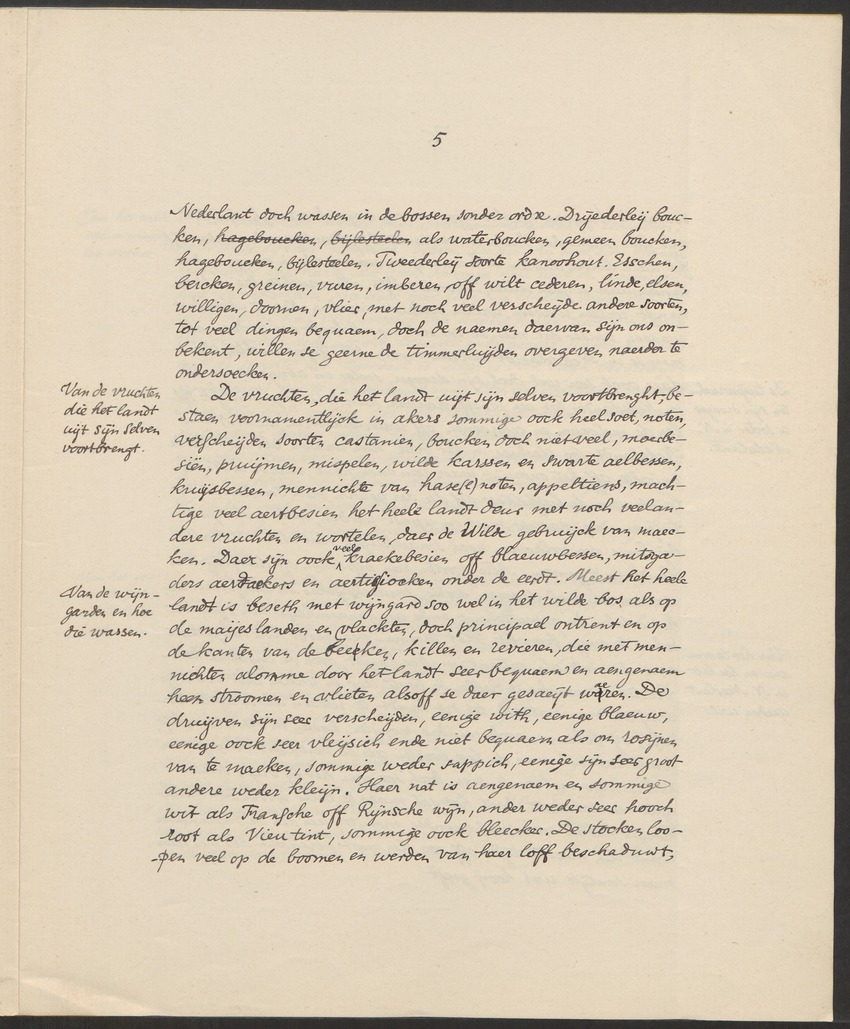 5
Nederlant doch wassen in de bossen sonder ordre. Drijederleij bouc-
ken, hageboucken, bijlesteelen als waterboucken, gemeen boucken,
hageboucken, bijlesteelen. Tweederleij soorte kanoohout. Esschen,
bercken, greinen, vuren, imberen, off wilt cederen, linde, elsen,
willigen, doornen, vlier, met noch veel verscheijde andere soorten,
tot veel dingen bequaem, doch de naemen daervan sijn ons on-
bekent, willen se geerne de timmerluijden overgeven naerder te
ondersoecken.
Van de vruchten
die het landt
uijt sijn selven
voortbrengt.
De vruchten, die het landt uijt sijn selven voortbrenght, be-
staen voornamentlijck in akers sommige oock heel soet, noten,
verscheijden soorten castanien, boucken doch niet veel, moerbe-
siën, pruijmen, mispelen, wilde karssen en swarte aelbessen,
kruijsbessen, mennichte van hase(l)noten, appeltiens, mach-
tige veel aertbesien het heele landt deur met noch veelan-
dere vruchten en wortelen, daer de Wilde gebruijck van maec-
ken. Daer sijn oock veel kraekebesien off blaeuwbessen, mitsga-
ders aerdaekers en aertigiocken onder de eerdt. Meest het heele
Van de wijn-
garden en hoe
die wassen.
landt is beseth met wijngard soo wel in het wilde bos als op
de maijeslanden en vlackten, doch principael ontrent en op
de kanten van de beecken, killen en revieren, die met men-
nichten alomme door het landt seer bequaem en aengenaem
heen stroomen en vlieten alsoff se daer gesaeijt waeren. De
druijven sijn seer verscheijden, eenige with, eenige blaeuw,
eenige oock seer vleijsich ende niet bequaem als om rosijnen
van te maeken, sommige weder sappich, eenige sijn seer groot
andere weder kleijn. Haer nat is aengenaem en sommige
wit als Fransche off Rijnsche wijn, ander weder seer hooch
root als Vieu tint, sommige oock bleecker. De stocken loo-
pen veel op de boomen en werden van haer loff beschaduwt,